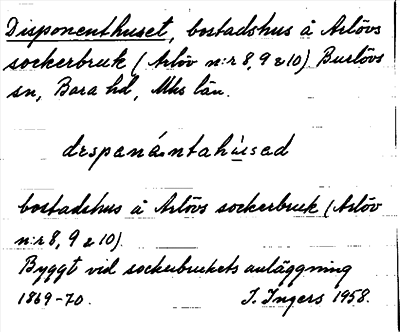 Disponenthuset, bostadshus å Arlövs
sockerbruk (Arlöv n:r 8, 9 & 10) Burlövs
sn, Bara hd, Mhs län.
despanántahùsad
bostadshus å Arlövs sockerbruk (Arlöv
n:r 8, 9 & 10).
Byggt vid sockerbrukets anläggning
1869-70. I. Ingers 1958.